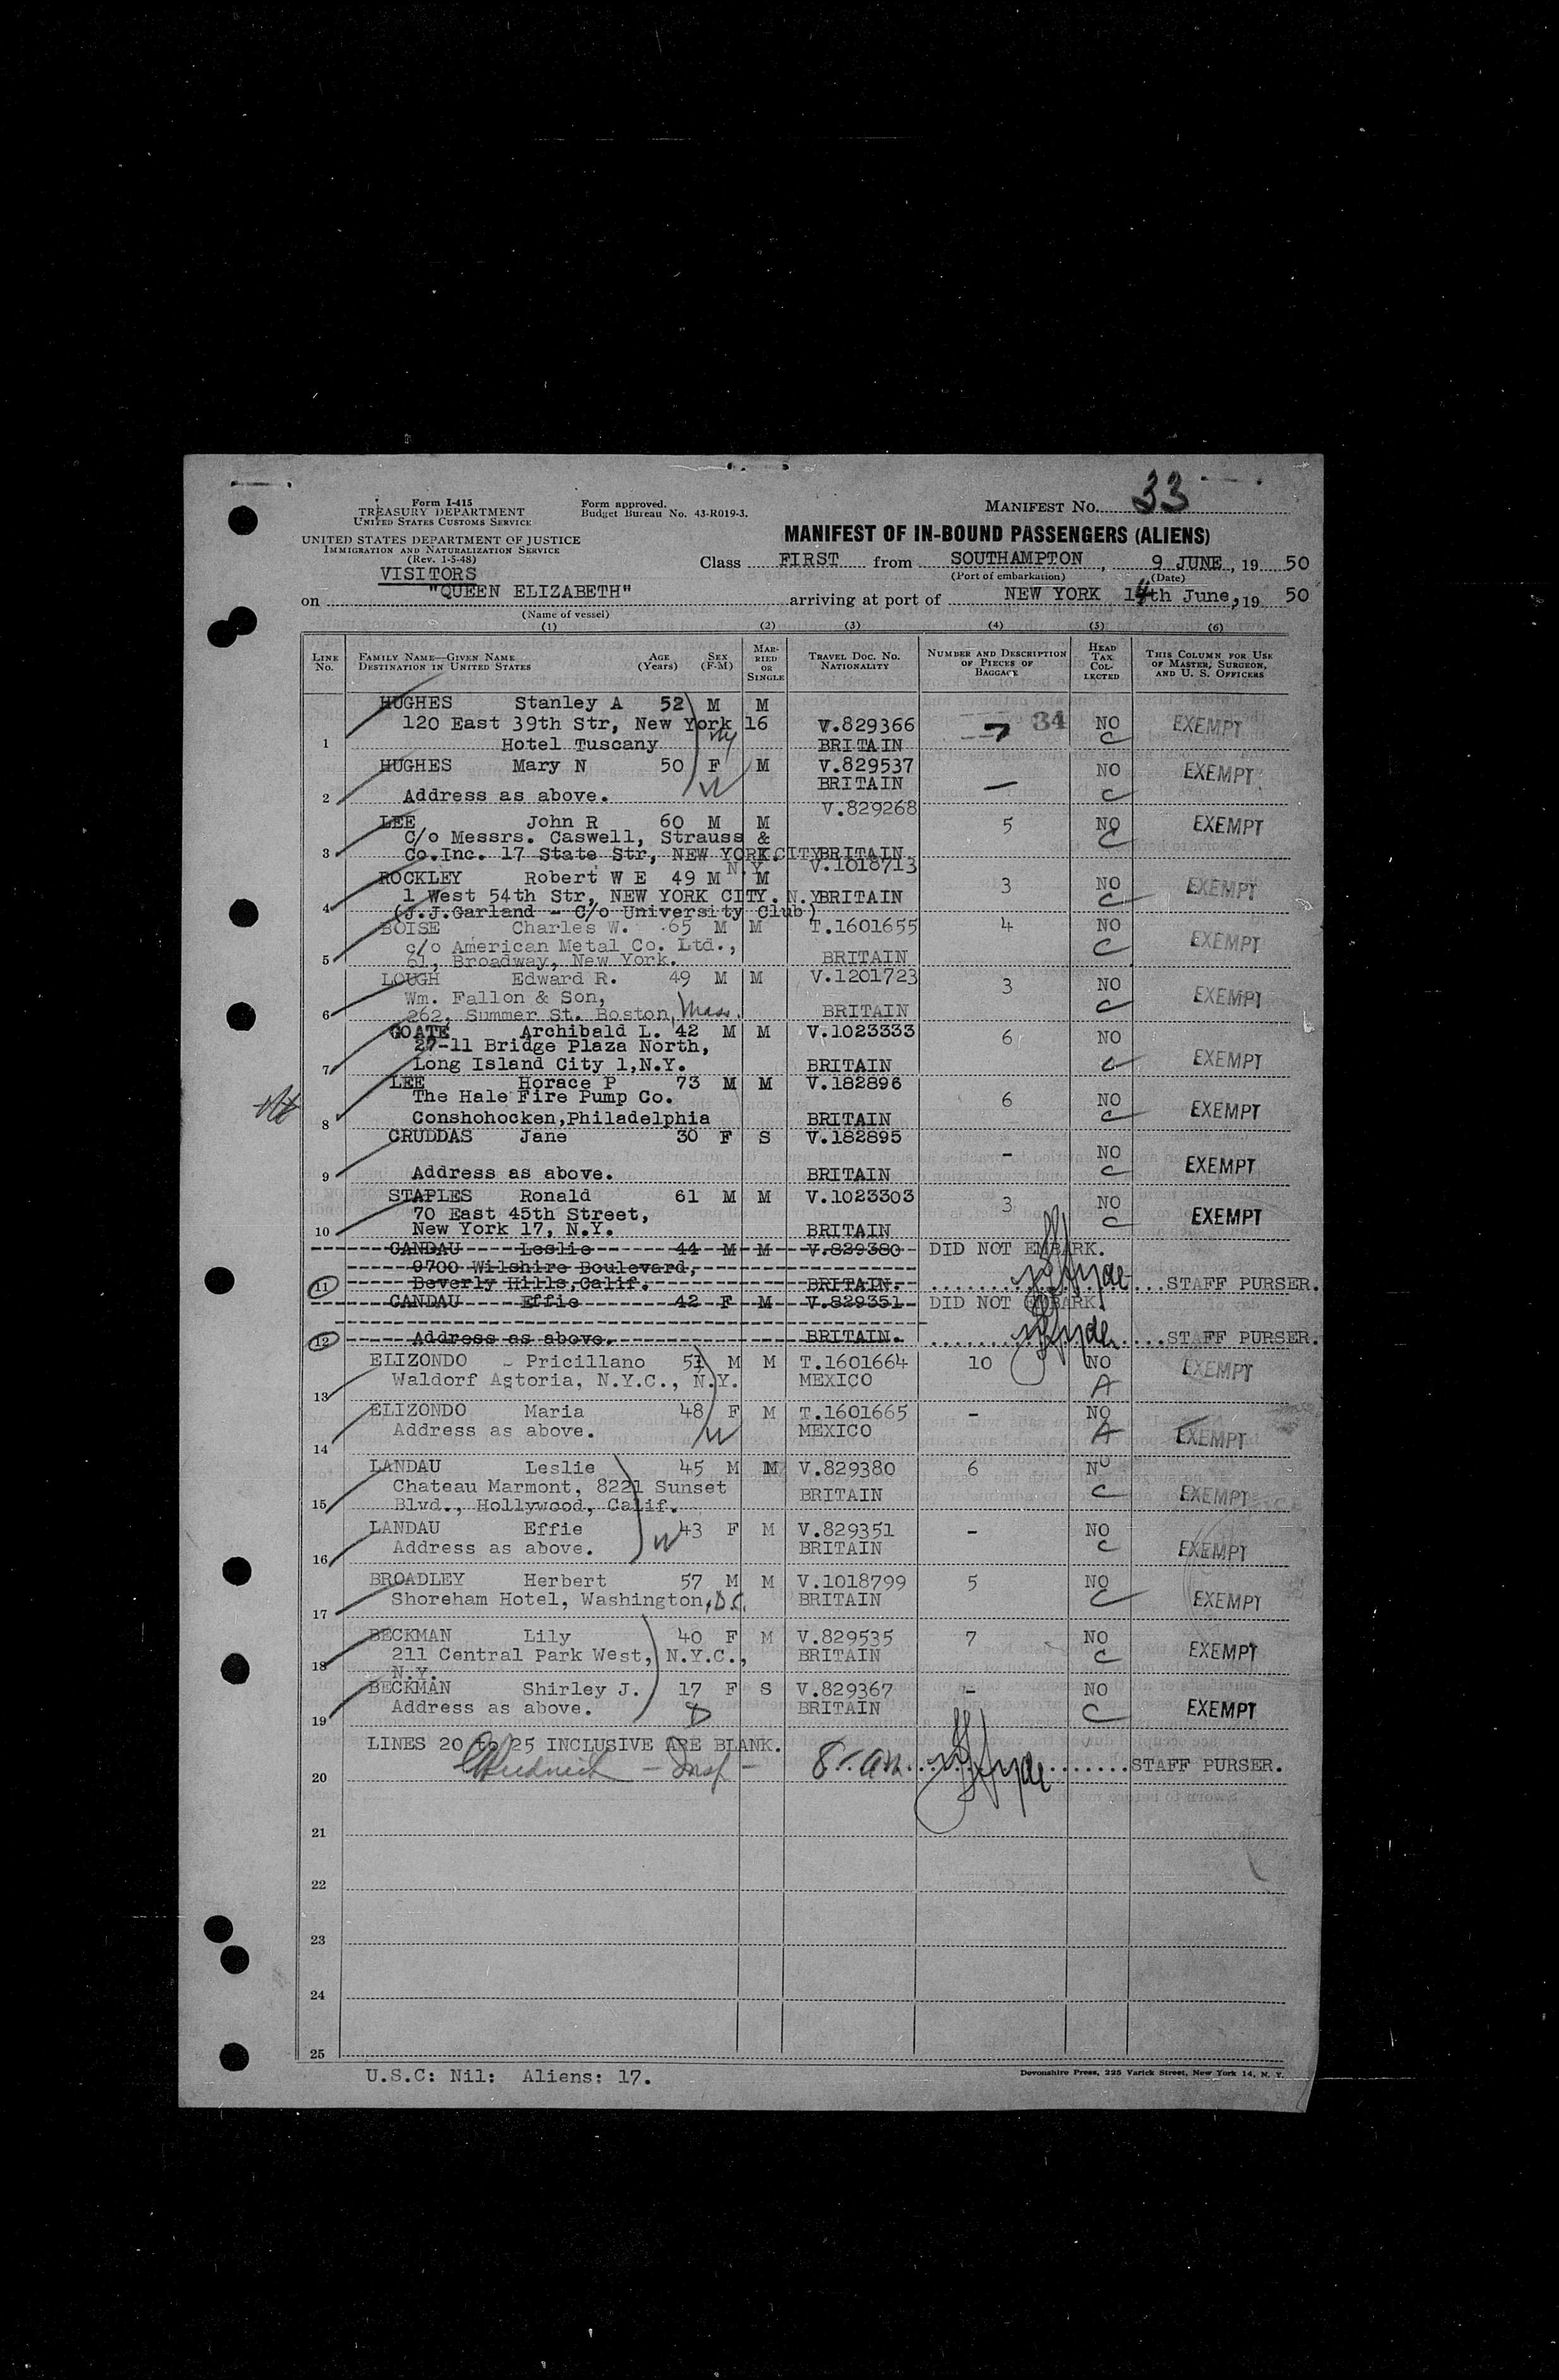 Form I-415
TREASURY DEPARTMENT
UNITED STATES CUSTOMS SERVICE
Form approved.
Budget Bureau No. 43-R019-3.
MANIFEST No. 33
UNITED STATES DEPARTMENT OF JUSTICE
IMMIGRATION AND NATURALIZATION SERVICE
(Rev. 1-5-48)
VISITORS
MANIFEST OF IN-BOUND PASSENGERS (ALIENS)
Class FIRST from SOUTHAMPTON, 9 JUNE, 19 50
(Port of embarkation) (Date)
on "QUEEN ELIZABETH" arriving at port of NEW YORK 14th June, 19 50
(Name of vessel)
(1) (2) (3) (4) (5) (6)
LINE No. FAMILY NAME—GIVEN NAME DESTINATION IN UNITED STATES AGE (Years) SEX (F-M) MARRIED OR SINGLE TRAVEL DOC. NO. NATIONALITY NUMBER AND DESCRIPTION OF PIECES OF BAGGAGE HEAD TAX COLLECTED THIS COLUMN FOR USE OF MASTER, SURGEON, AND U. S. OFFICERS
HUGHES Stanley A 52 M M
120 East 39th Str, New York 16 V.829366 7 34 NO EXEMPT
1 Hotel Tuscany BRITAIN C
HUGHES Mary N 50 F M V.829537 NO EXEMPT
BRITAIN —
2 Address as above. C
V.829268
LEE John R 60 M M 5 NO EXEMPT
C/o Messrs. Caswell, Strauss & C
3 Co.Inc. 17 State Str, NEW YORK CITY BRITAIN
N.Y. V.1018713
ROCKLEY Robert W E 49 M M 3 NO EXEMPT
1 West 54th Str, NEW YORK CITY. N.Y BRITAIN C
4 (J.J.Garland - C/o University Club)
BOISE Charles W. 65 M M T.1601655 4 NO
c/o American Metal Co. Ltd., C EXEMPT
5 61, Broadway, New York. BRITAIN
LOUGH Edward R. 49 M M V.1201723 3 NO
Wm. Fallon & Son, C EXEMPT
6 262, Summer St. Boston, Mass. BRITAIN
GOATE Archibald L. 42 M M V.1023333 6 NO
27-11 Bridge Plaza North,
7 Long Island City 1,N.Y. BRITAIN C EXEMPT
LEE Horace P 73 M M V.182896
The Hale Fire Pump Co. 6 NO
8 Conshohocken,Philadelphia BRITAIN C EXEMPT
CRUDDAS Jane 30 F S V.182895
- NO
9 Address as above. BRITAIN C EXEMPT
STAPLES Ronald 61 M M V.1023303 3 NO
70 East 45th Street, C EXEMPT
10 New York 17, N.Y. BRITAIN
CANDAU Leslie 44 M M V.829380 DID NOT EMBARK.
9700 Wilshire Boulevard,
11 Beverly Hills,Calif. BRITAIN. STAFF PURSER.
CANDAU Effie 42 F M V.829351 DID NOT EMBARK
12 Address as above. BRITAIN. STAFF PURSER.
ELIZONDO - Pricillano 51 M M T.1601664 10 NO EXEMPT
Waldorf Astoria, N.Y.C., N.Y. MEXICO
13 A
ELIZONDO Maria 48 F M T.1601665 - NO
Address as above. MEXICO A EXEMPT
14
LANDAU Leslie 45 M M V.829380 6 NO
Chateau Marmont, 8221 Sunset BRITAIN C EXEMPT
15 Blvd., Hollywood, Calif.
LANDAU Effie 43 F M V.829351 - NO
Address as above. BRITAIN C EXEMPT
16
BROADLEY Herbert 57 M M V.1018799 5 NO
Shoreham Hotel, Washington, D.C. BRITAIN C EXEMPT
17
BECKMAN Lily 40 F M V.829535 7 NO
211 Central Park West, N.Y.C., BRITAIN C EXEMPT
18 N.Y.
BECKMAN Shirley J. 17 F S V.829367 - NO
Address as above. BRITAIN C EXEMPT
19
LINES 20 to 25 INCLUSIVE ARE BLANK.
20 STAFF PURSER.
21
22
23
24
25
U.S.C: Nil: Aliens: 17.
Devonshire Press, 225 Varick Street, New York 14, N. Y.